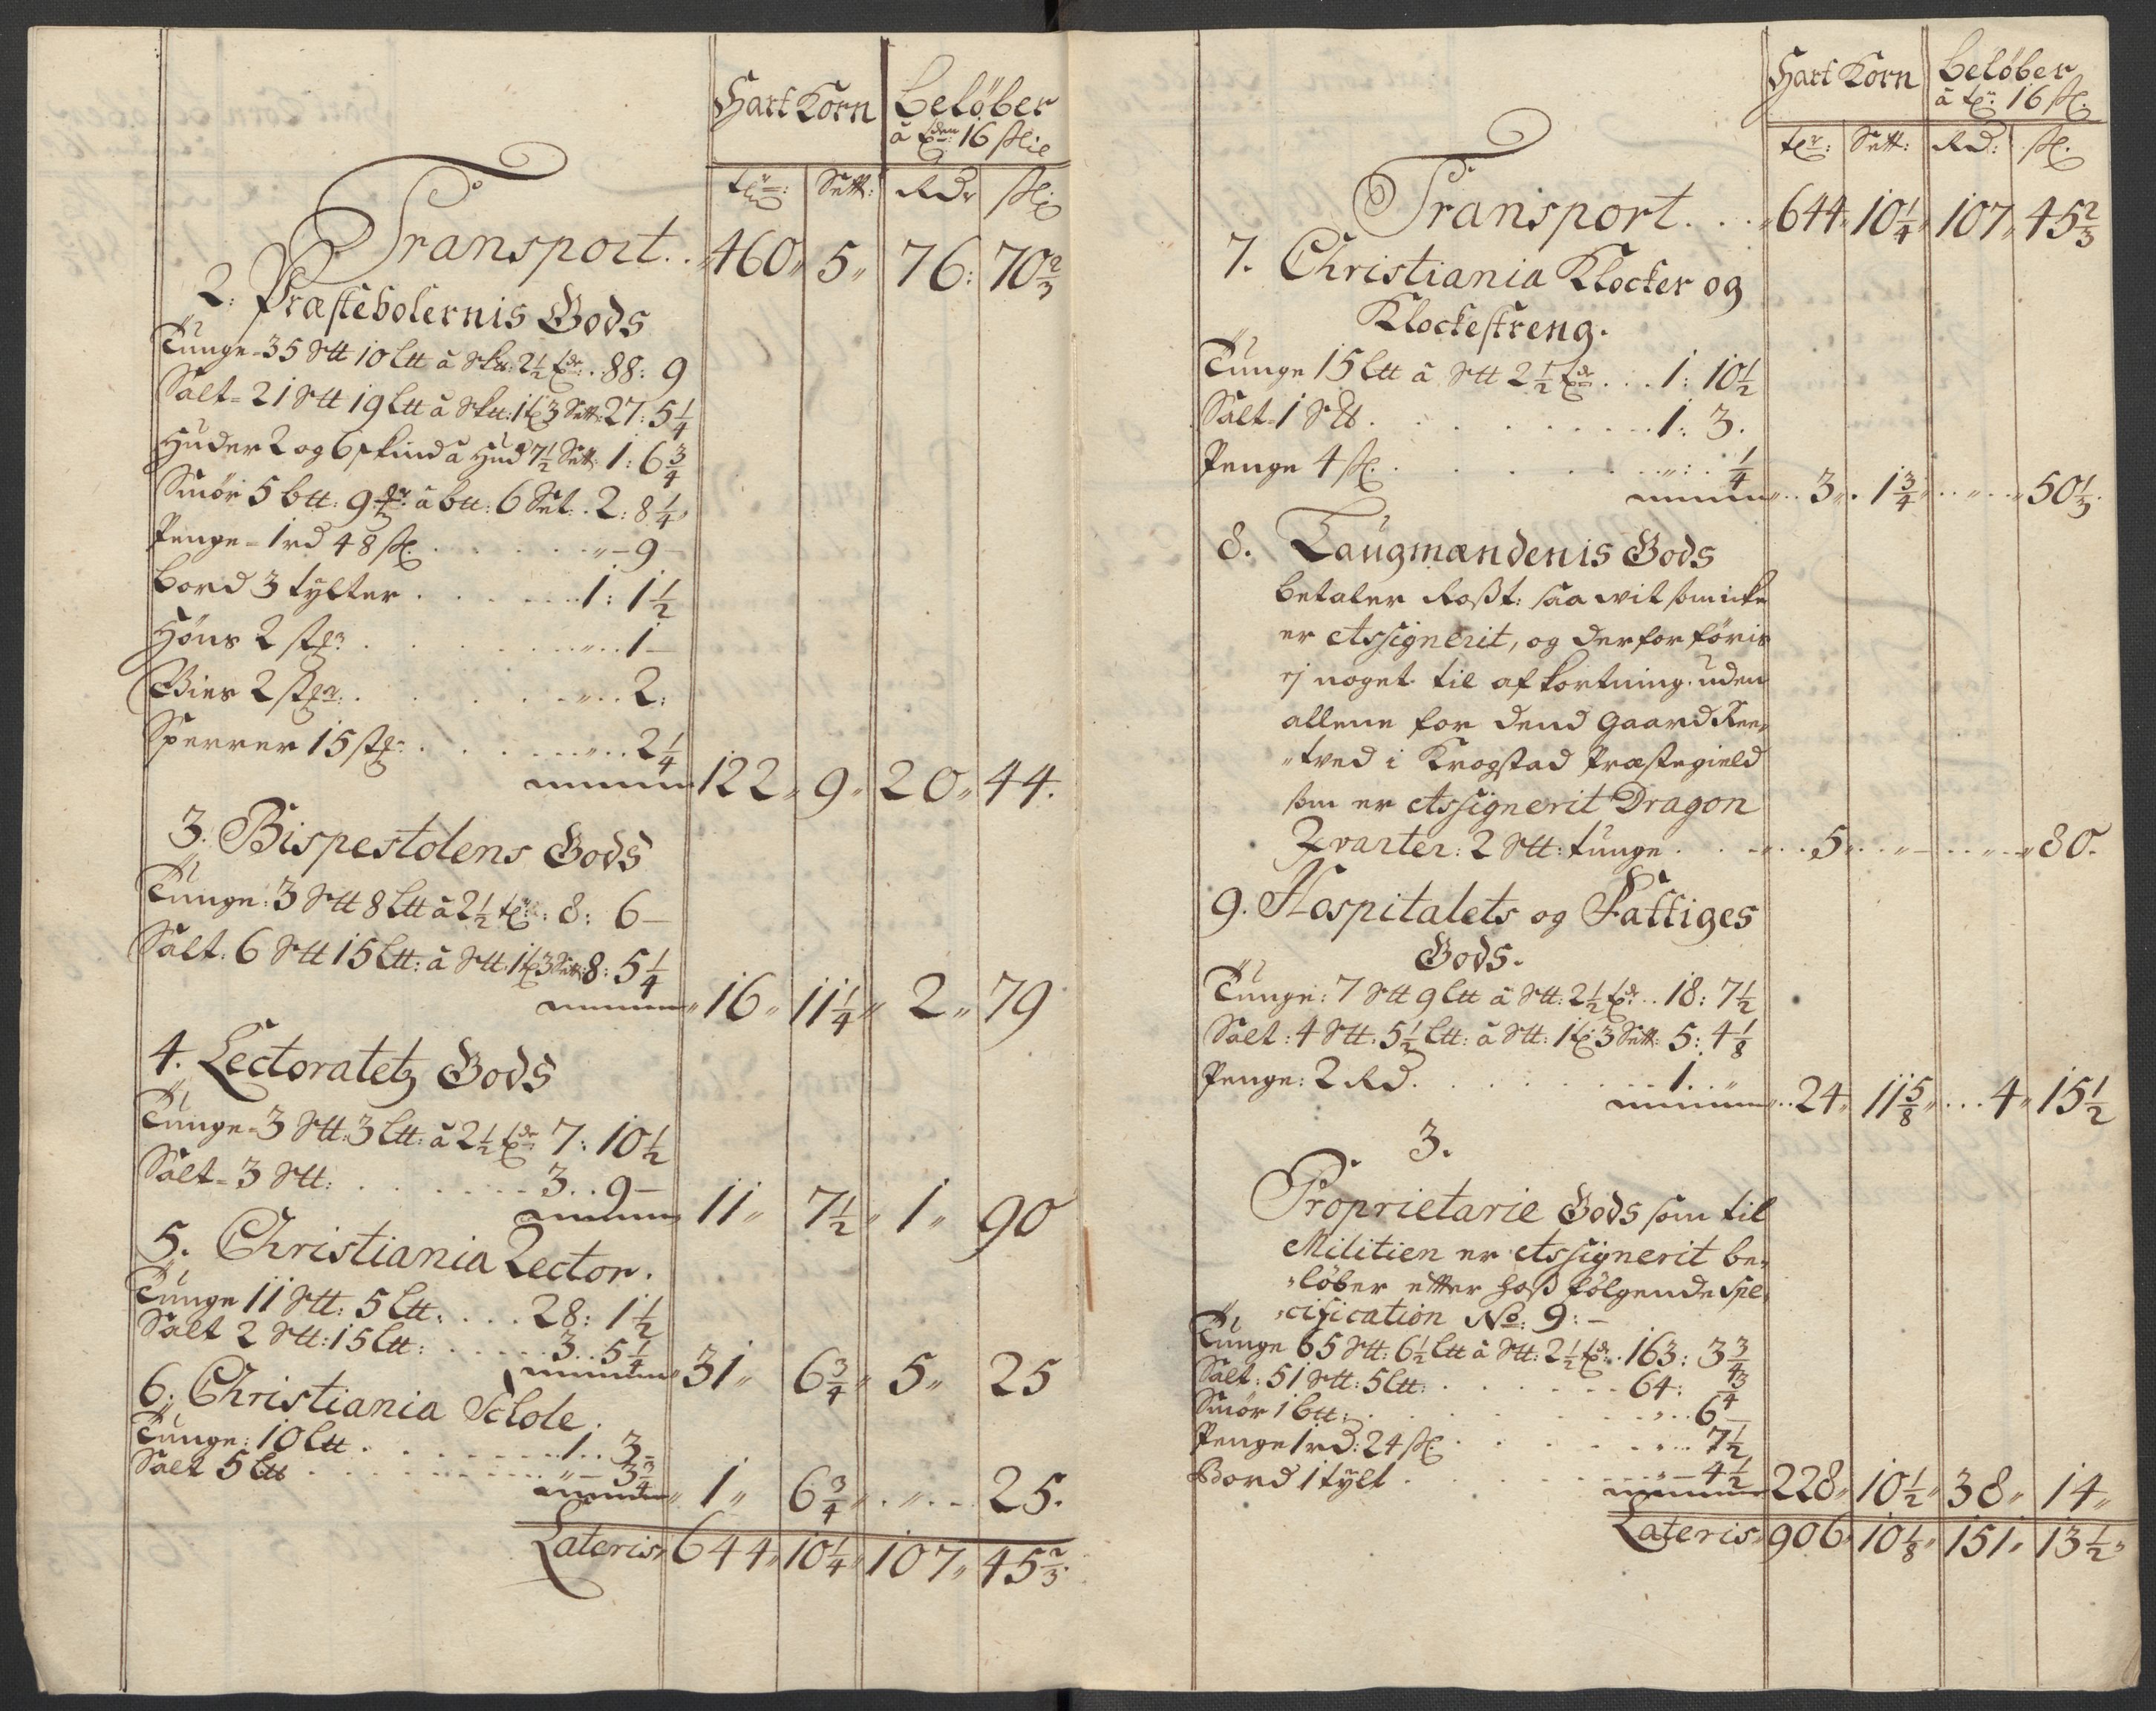 Hart Korn Beløber
à tde: 16 skil
tdr: Sett: Rdr skl:
Transport . . 460 " 5 " 76: 70 2/3
2: Præstebolernis Gods
Tunge - 35 Stt 10 Ltt à Skt: 2 1/2 tdr. 88: 9
Salt = 21 Stt 19 Ltt à Sktt: 1 t 3 Sett: 27: 5 1/4
Huder 2 og 6 skind à Hud 7 1/2 Sett: 1: 6 3/4
Smör 5 btt: 9 à btt: 6 Set: . 2: 8 1/4
Penge = 1 rd 48 sk. . . . . " - 9 -
Bord 3 tylter . . . . . 1: 1 1/2
Höns 2 stk: . . . . . " . . 1 -
Bier 2 stkr: . . . . " . . 2:
Sperrer 15 stk: . . . . . " . . 2 1/4
122 " 9 " 20 " 44.
3. Bispestolens Gods
Tunge: 3 Stt 8 Ltt à 2 1/2 tdr: 8: 6 -
Salt: 6 Stt 15 Ltt: à Stt: 1 t 3 Sett: 8: 5 1/4
" 16 " 11 1/4 " 2 " 79
4. Lectoratetz Gods
Tunge = 3 Stt: 3 Ltt: à 2 1/2 tdr 7: 10 1/2
Salt = 3 Stt: . . . . . - 3 . . 9 -
11 " 7 1/2 " 1 " 90
5. Christiania Lector.
Tunge 11 Stt: 5 Ltt: . . . 28: 1 1/2
Salt 2 Stt: 15 Ltt: . . . . 3 . . 5 1/4
" 31 " 6 3/4 " 5 " 25
6: Christiania Schole.
Tunge: 10 Ltt . . . . . . 1 . . 3 -
Salt 5 Ltt . . . . . . " - 3 3/4
" 1 " 6 3/4 " . " . . 25.
Lateris " 644 " 10 1/4 " 107 " 45 2/3
Hart Korn Beløber
à tdr: 16 sk.
tdr: Sett: Rd: sk.
Transport . . . " 644 " 10 1/4 " 107 " 45 2/3
7. Christiania Klocker og
Klockestreng.
Tunge 15 Ltt à Stt 2 1/2 tdr . . . 1: 10 1/2
Salt = 1 Stt . . . . . . 1: 3.
Penge 4 sk. . . . . . " : . 1/4
" . . 3 " . 1 3/4 " . . " . . " 50 1/3.
8. Laugmændenis Gods
betaler Rosst: saa wit som icke
er Assignerit, og derfor föris
ej noget til afkortning. uden
allene for dend Gaard Ree=
"tved i Krogstad Præstegield
som er Assignerit Dragon
Qvarter: 2 Stt: tunge . . . " . . 5 " . . " - . . " - " 80.
9. Hospitalets og Fattiges
Gods.
Tunge: 7 Stt 9 Ltt à Stt: 2 1/2 tdr . . 18: 7 1/2
Salt: 4 Stt. 5 1/2 Ltt: à Stt: 1 t 3 Sett: 5: 4 1/8
Penge: 2 Rd. . . . . . . 1 . . "
" . . 24 " 11 5/8 " . . . 4 " 15 1/2
3.
Proprietarie Gods som til
Militien er Assignerit be=
"löber efter hoss fölgende Spe=
"cification No: 9: -
Tunge 65 Stt: 6 1/2 Ltt à Stt: 2 1/2 tdr . 163: 3 3/4
Salt: 51 Stt: 5 Ltt: . . . . . - 64: 3/4
Smör 1 btt: . . . . . . " . . 6 -
Penge 1 rd: 24 sk. . . . . . " . . 7 1/2
Bord 1 tylt . . . . . . " - 4 1/2
228 " 10 1/2 " 38 " 14 "
Lateris " 906 " 10 1/8 " 151 " 13 1/2 "